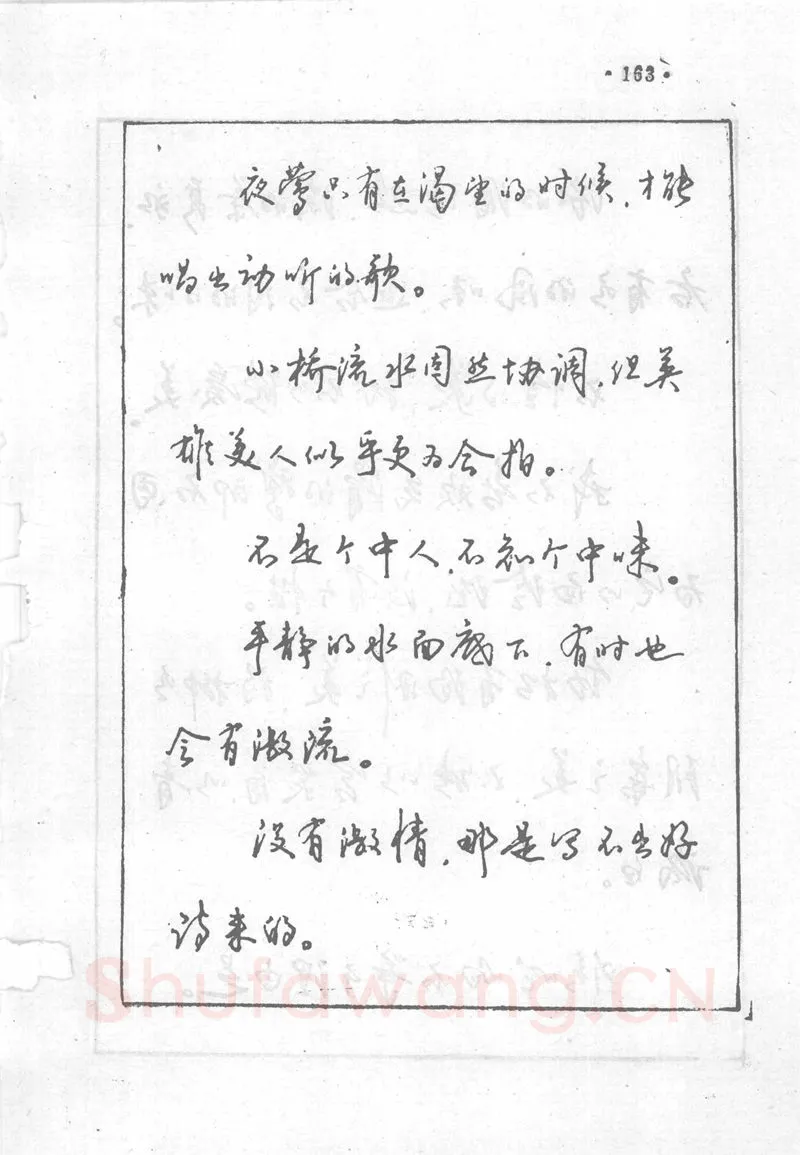 ·163·
夜莺只有在渴望的时候，才能
唱出动听的歌。
小桥流水固然协调，但英
雄美人似乎更为合拍。
不是个中人，不知个中味。
平静的水面底下，有时也
会有激流。
没有激情，那是写不出好
诗来的。
Shufawang.CN